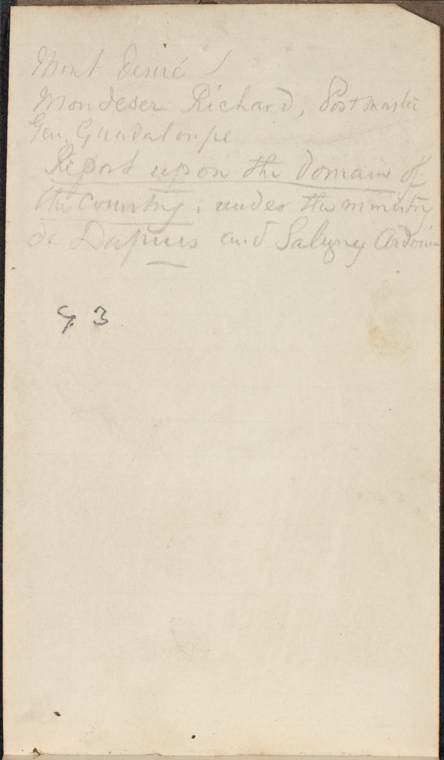 Mont Desiré /
Mondeser Richard, Postmaster
Gen. Guadaloupe
Report upon the domains of
the country, under the ministry
de Dapuis and Salgney Ardouin
G. 3